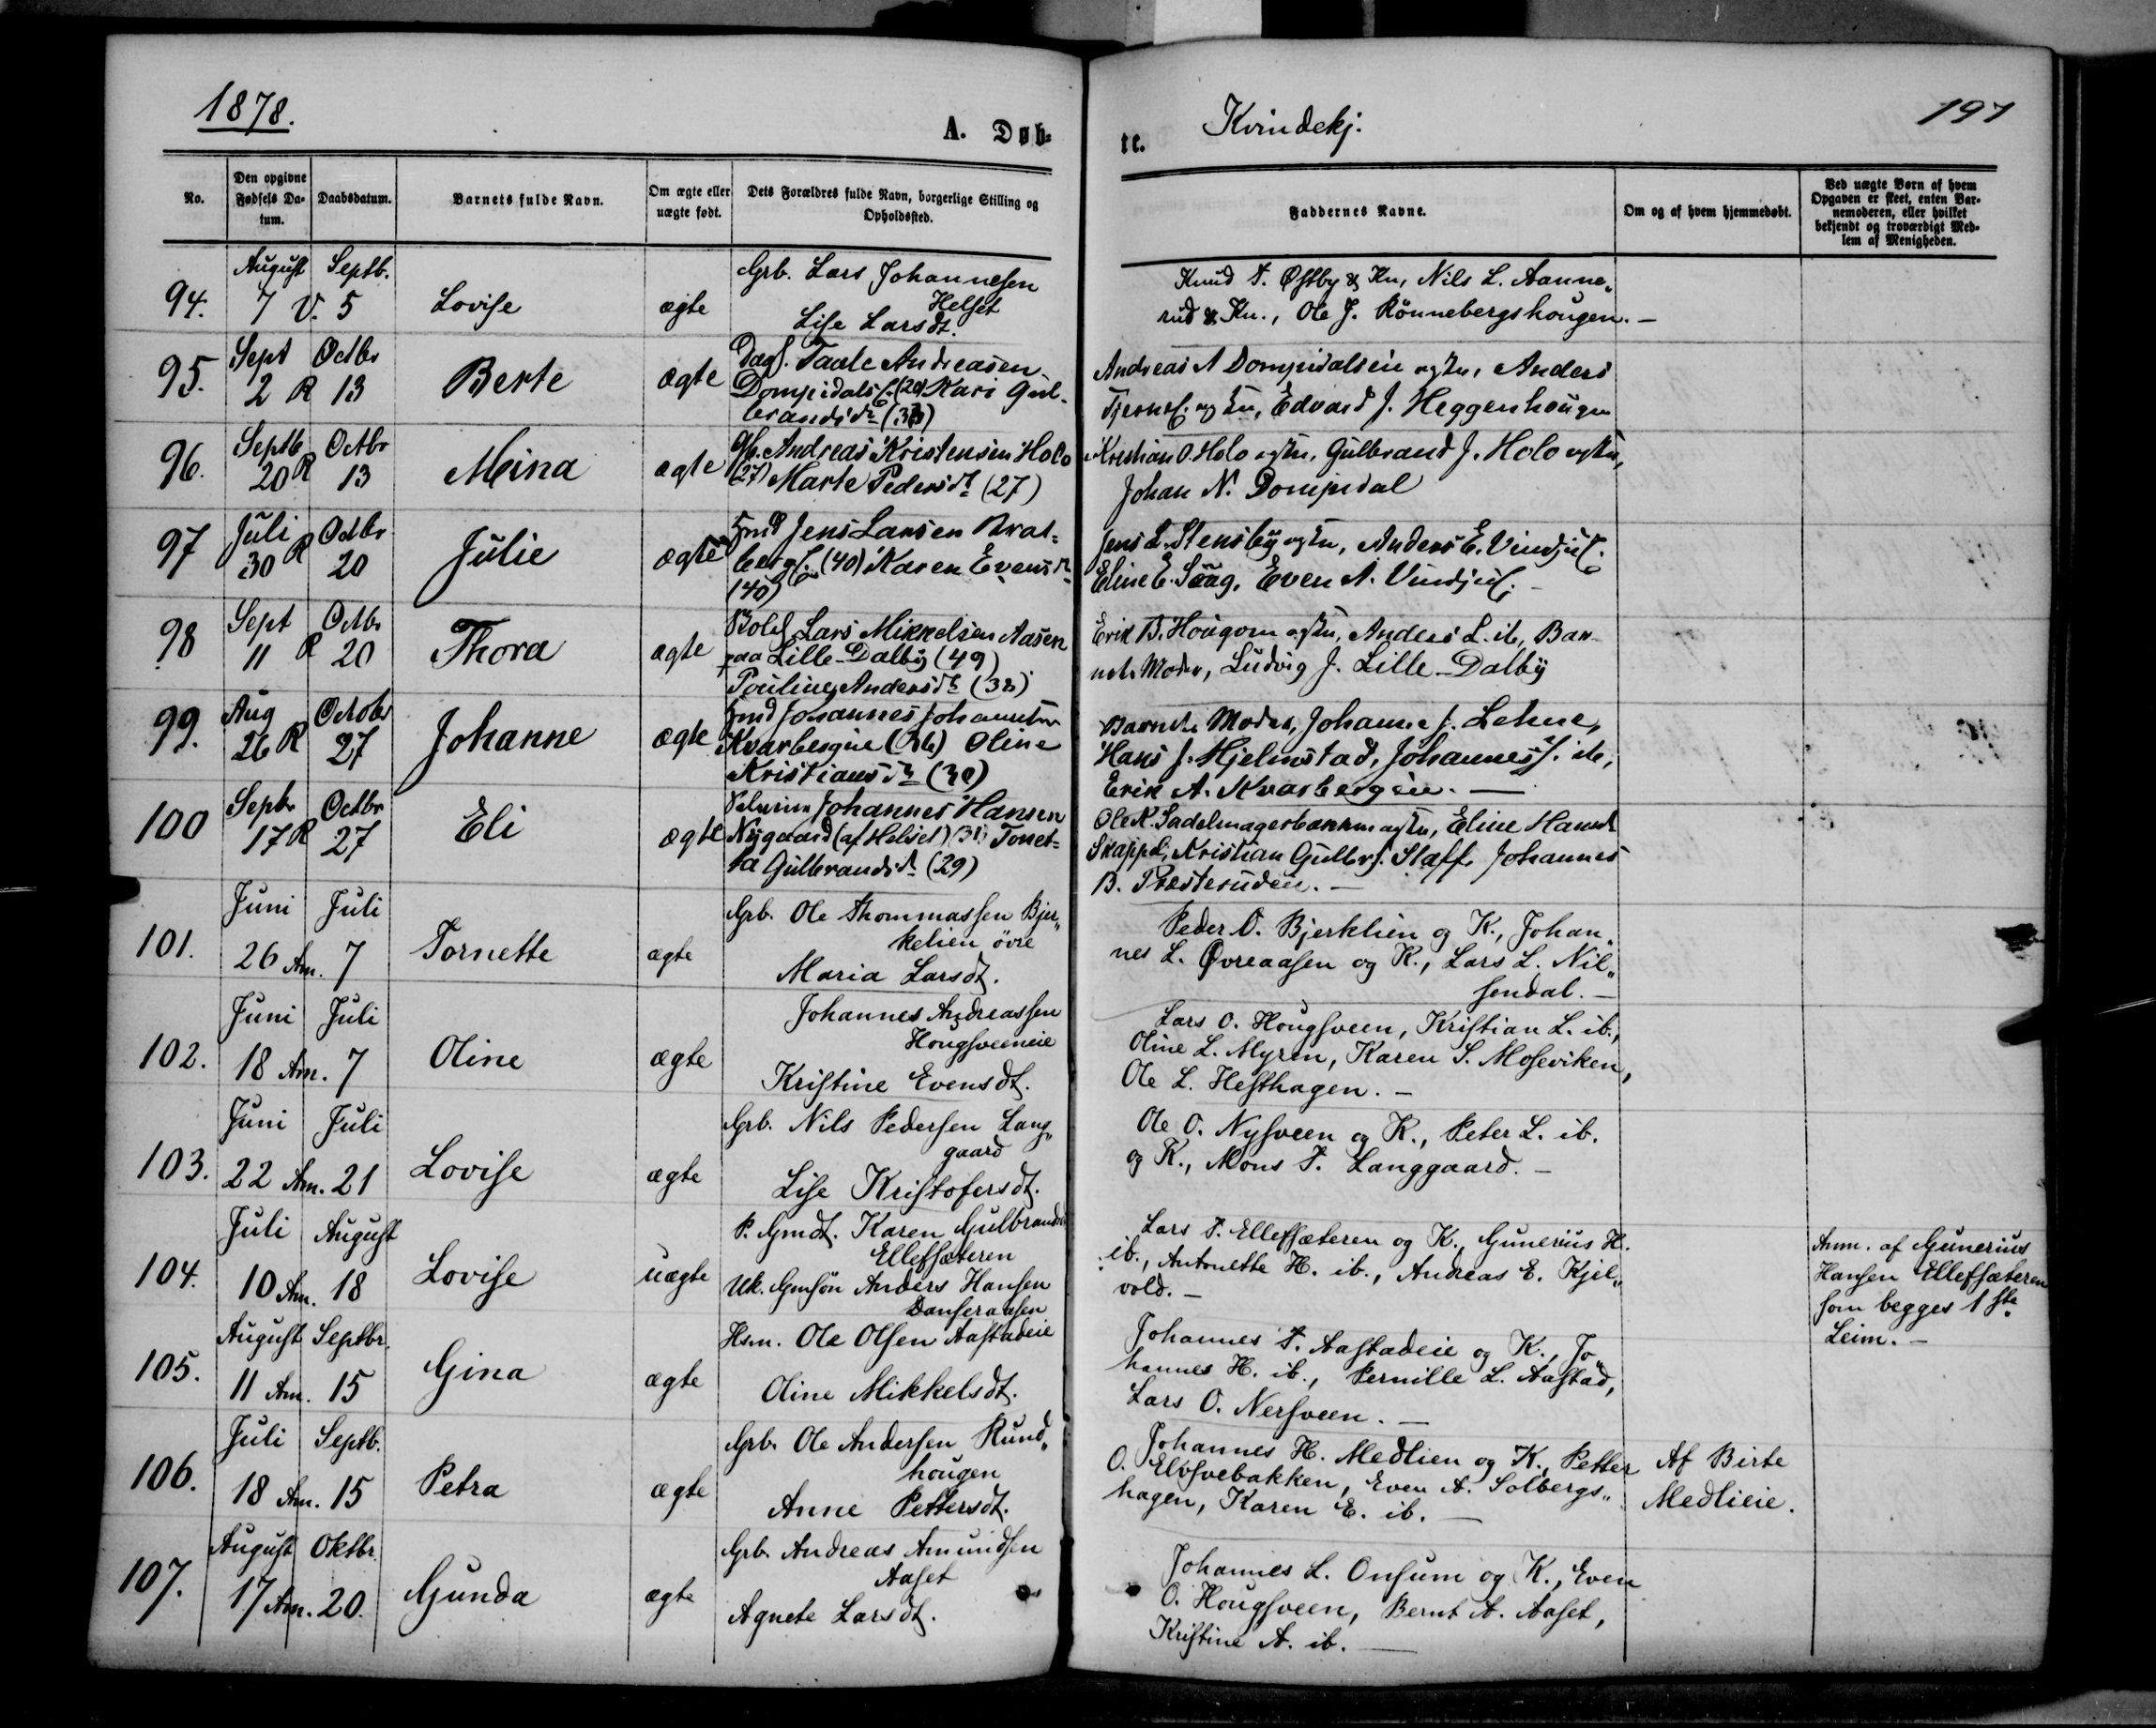 1878.
A. Døb-
te.
Kvindekj.
197
No.
Den opgivne Fødsels Da-
tum.
Daabsdatum.
Barnets fulde Navn.
Om ægte eller
uægte født.
Dets Forældres fulde Navn, borgerlige Stilling og
Opholdssted.
Faddernes Navne.
Om og af hvem hjemmedøbt.
Ved uægte Børn af hvem
Opgaven er skeet, enten Bar-
nemoderen, eller hvilket
bekjendt og troværdigt Med-
lem af Menigheden.
94.
August
7 V.
Septb.
5
Lovise
ægte
Grb. Lars Johannesen
Helset
Lise Larsdt.
Knud T. Østby & Kn, Nils L. Aanne„
rud & Kn., Ole J. Rønnebergshougen. —
95.
Sept
2 R
Octbr
13
Berte
ægte
Taale Andreasen
(29) Kari Gul-
brandsdr
Andreas A Dompidalseie ogKn, Anders
og Kn, Edvard J. Heggenhougen
96.
Septb
20 R
Octbr
13
Mina
ægte
Gb. Andreas Kristensen Holo
(27) Marte Pedersdr (27)
Kristian O. Holo ogKn, Gulbrand J. Holo ogKn,
Johan N. Dompidal
97
Juli
30 R
Octbr
20
Julie
ægte
Hmd Jens Larsen Brat-
(40) Karen Evensdr
(40)
Jens L. Stensby ogKn, Anders E.
Eline E. Even A.
98
Sept
11 R
Octbr
20
Thora
ægte
Lars Mikkelsen Aasen
paa Lille-Dalby (49)
Pouline Andersdr (38)
Erik B. Hougom ogKn, Anders L. ib, Bar-
nets Moder, Ludvig J. Lille-Dalby
99.
Aug
26 R
Octobr
27
Johanne
ægte
Hmd Johannes Johannesen
Kvarbergeie (36) Oline
Kristiansdr (30)
Barnets Moder, Johanne J. Lehne,
Hans J. Hjelmstad, Johannes J. ib,
Erik A. Kvarbergeie. —
100
Septbr
17 R
Octbr
27
Eli
ægte
Johannes Hansen
Nygaard (af Helset) (31) Tonet-
ta Gulbrandsdr (29)
Ole K. Sadelmagerbakken ogKn, Eline Hansdr
Skappel, Kristian Gulbr. Slaff, Johannes
B. Presteruden. —
101.
Juni
26 Am.
Juli
7
Tornette
ægte
Grb. Ole Thommassen Bjer„
kelien øvre
Maria Larsdt.
Peder O. Bjerklien og K., Johan„
nes L. Øvreaasen og K., Lars L. Nil„
sendal. —
102.
Juni
18 Am.
Juli
7
Oline
ægte
Johannes Andreassen
Hougsveeneie
Kristine Evensdt.
Lars O. Hougsveen, Kristian L. ib.,
Oline L. Myren, Karen S. Moseviken,
Ole L. Hesthagen. —
103.
Juni
22 Am.
Juli
21
Lovise
ægte
Grb. Nils Pedersen Lang„
gaard
Lise Kristofersdt.
Ole O. Nysveen og K., Peter L. ib.
og K., Mons P. Langgaard. —
104.
Juli
10 Am.
August
18
Lovise
uægte
P. Gmdt. Karen Gulbrandsdt
Ellefsæteren
Uk. Gmsøn Anders Hansen
Danseraasen
Lars P. Ellefsæteren og K., Gunerius H.
ib., Antonette H. ib., Andreas E. Kjel„
vold. —
Anm. af Gunerius
Hansen Ellefsæteren
som begges 1ste
Leim. —
105.
August
11 Am.
Septbr.
15
Gina
ægte
Hsm. Ole Olsen Aastadeie
Oline Mikkelsdt.
Johannes P. Aastadeie og K., Jo„
hannes H. ib., Pernille L. Aastad,
Lars O. Nersveen. —
106.
Juli
18 Am.
Septb.
15
Petra
ægte
Grb. Ole Andersen Rund„
hougen
Anne Pettersdt.
Johannes H. Medlien og K., Petter
O. Elvsvebakken, Even A. Solbergs„
hagen, Karen E. ib. —
Af Birte
Medlieie.
107.
August
17 Am.
Oktbr.
20.
Gunda
ægte
Grb. Andreas Amundsen
Aaset
Agnete Larsdt.
Johannes L. Onsum og K., Even
O. Hougsveen, Bernt A. Aaset,
Kristine A. ib. —